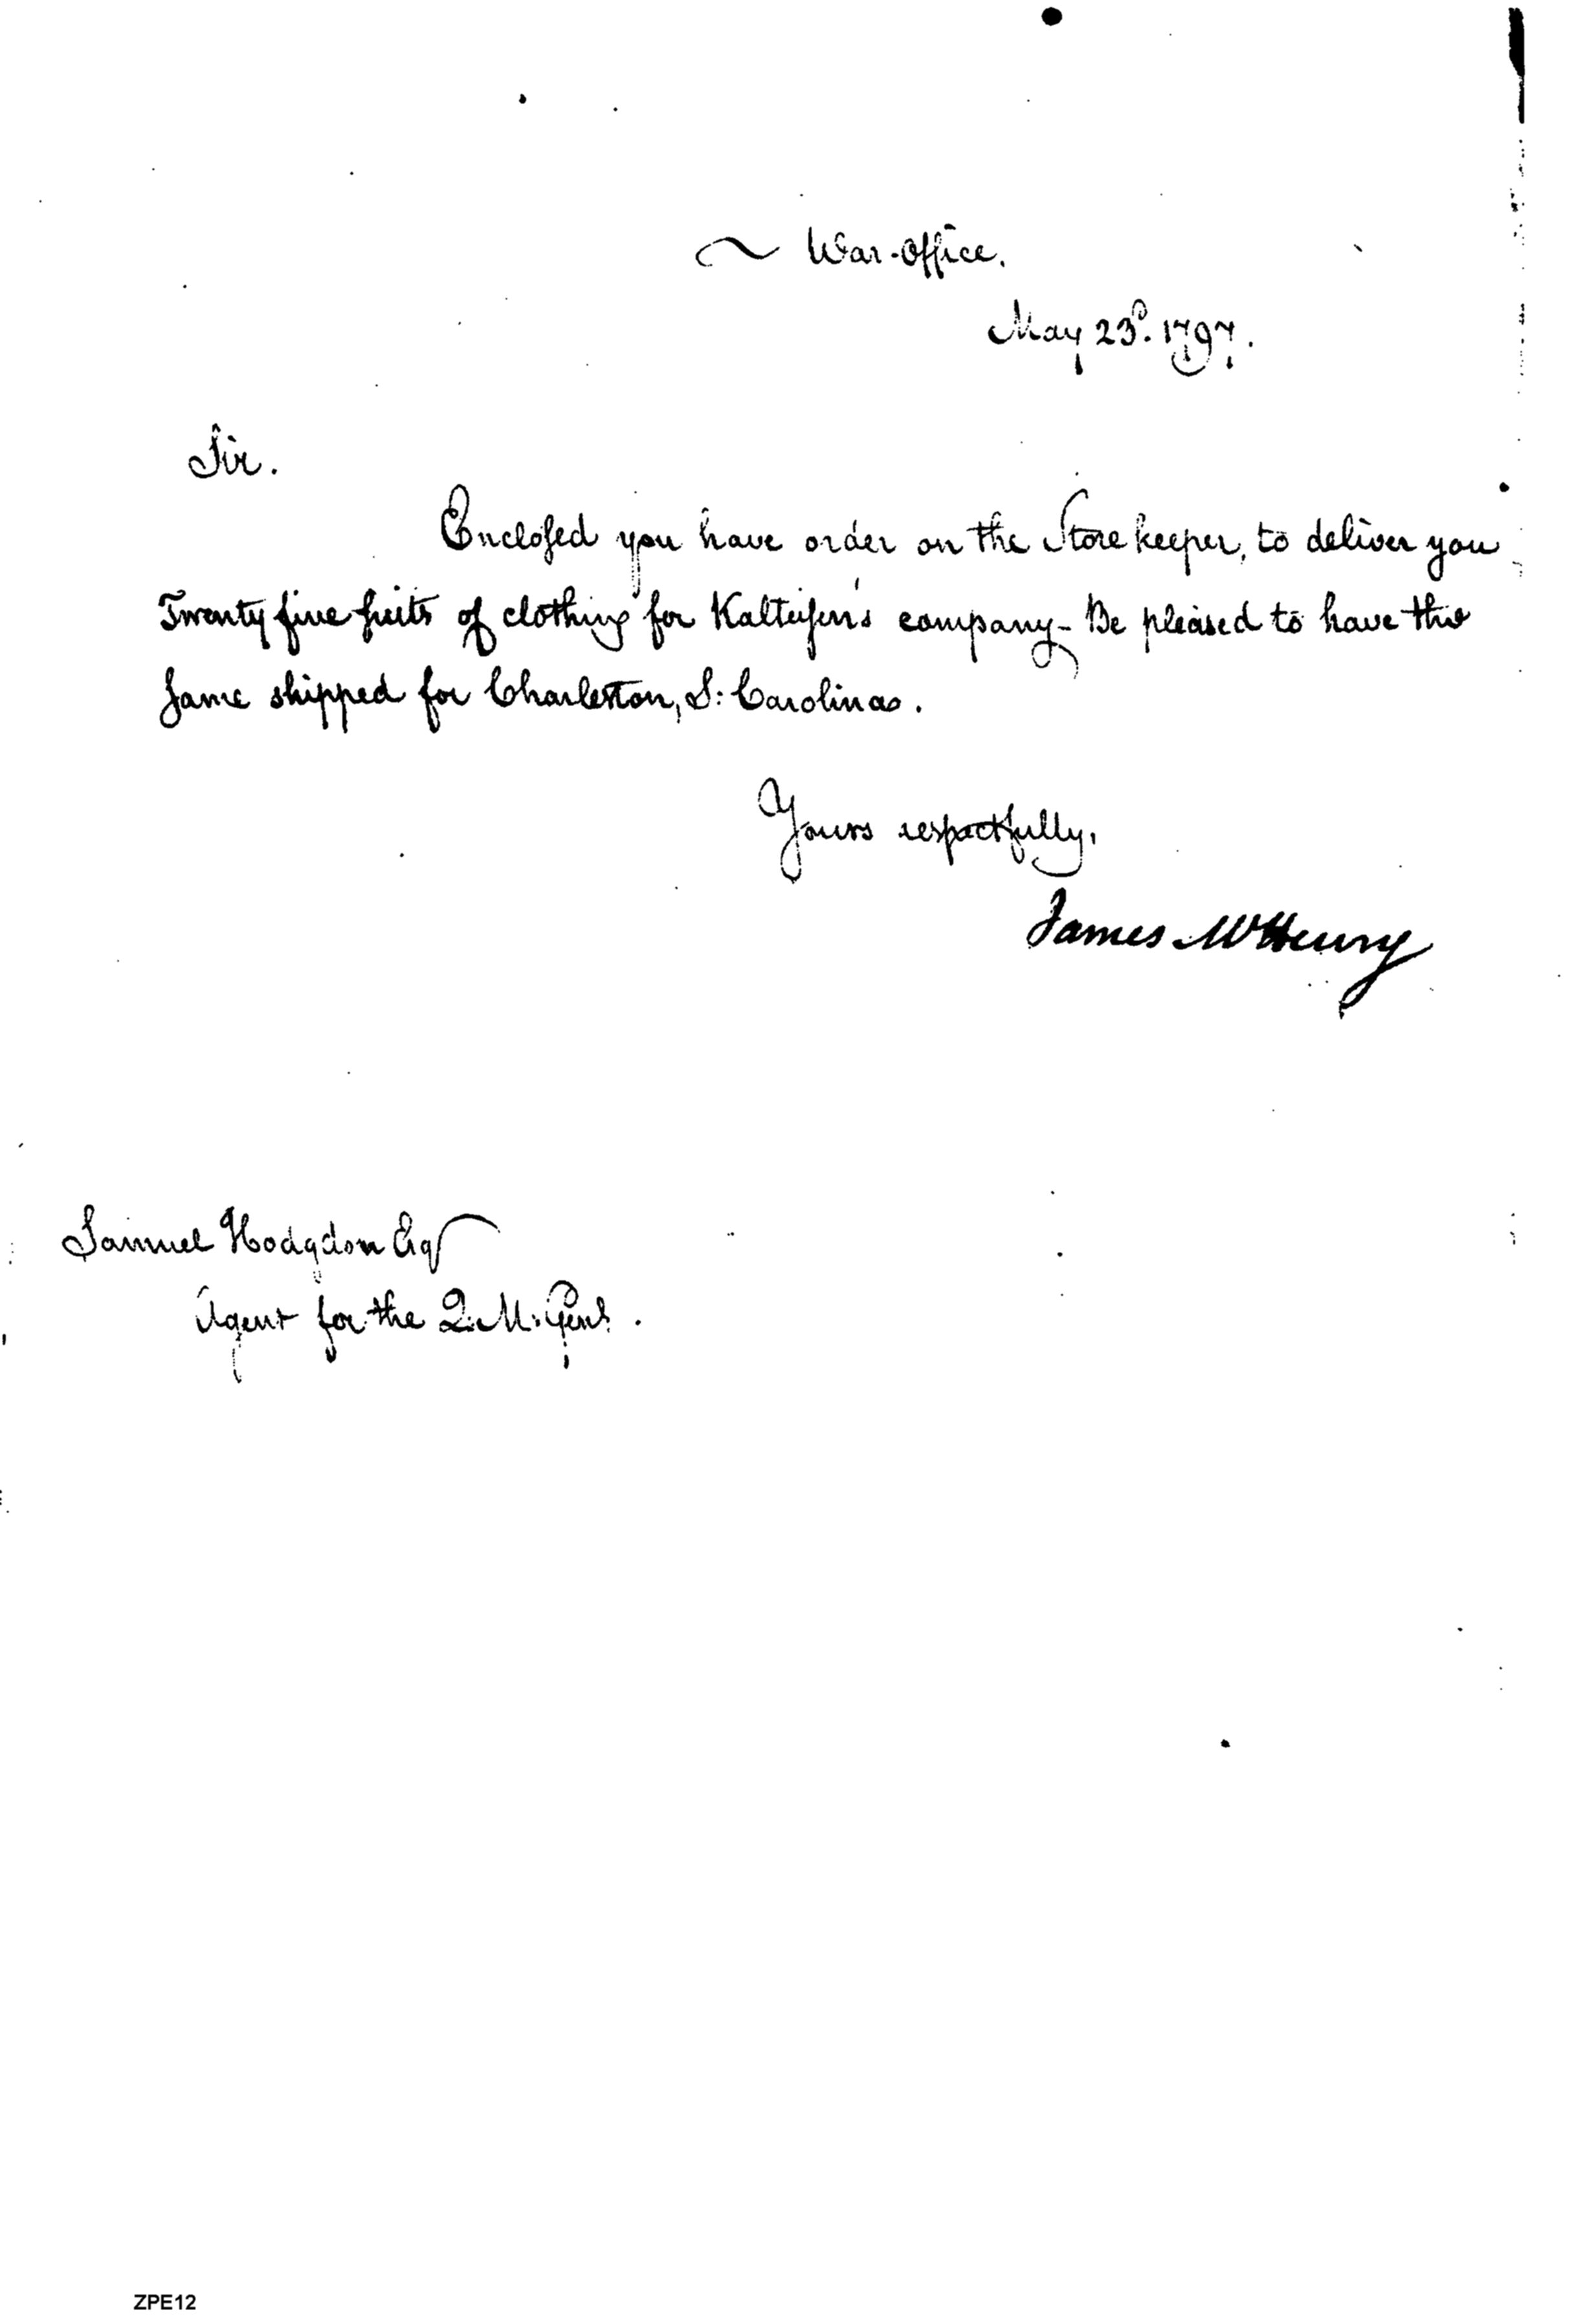 War-Office.
May 23d. 1797.
Sir.
Enclosed you have order on the Storekeeper, to deliver you
Twenty five suits of clothing for Kalteisen's company - Be pleased to have the
same shipped for Charleston, S: Carolina.
Yours respectfully,
James McHenry
Samuel Hodgdon Esqr
Agent for the Q.M. Genl.
ZPE12